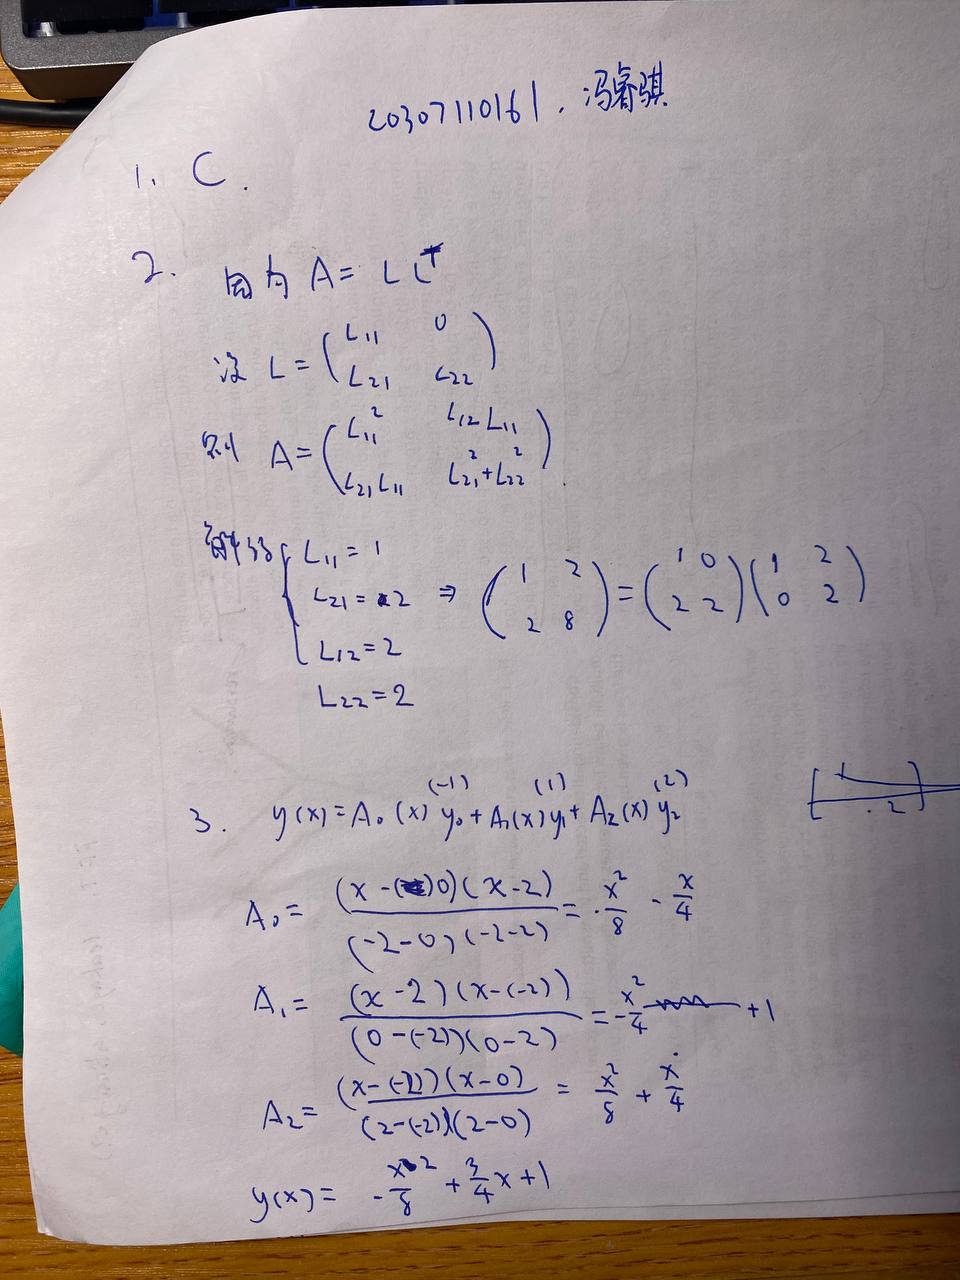 20307110161. 冯睿骐
1. C.
2. 因为 A = L Lᵀ
设 L = ( L₁₁ 0
L₂₁ L₂₂ )
则 A = ( L₁₁² L₁₂L₁₁
L₂₁L₁₁ L₂₁²+L₂₂² ).
解得 { L₁₁ = 1
L₂₁ = 2 ⇒ ( 1 2
2 8 ) = ( 1 0
2 2 ) ( 1 2
0 2 )
L₁₂ = 2
L₂₂ = 2
3. y(x) = A₀(x) y₀ + A₁(x) y₁ + A₂(x) y₂
(-1) (1) (2)
A₀ = (x-0)(x-2) / (-2-0)(-2-2) = x²/8 - x/4
A₁ = (x-2)(x-(-2)) / (0-(-2))(0-2) = -x²/4 + 1
A₂ = (x-(-2))(x-0) / (2-(-2))(2-0) = x²/8 + x/4
y(x) = -x²/8 + 3/4 x + 1